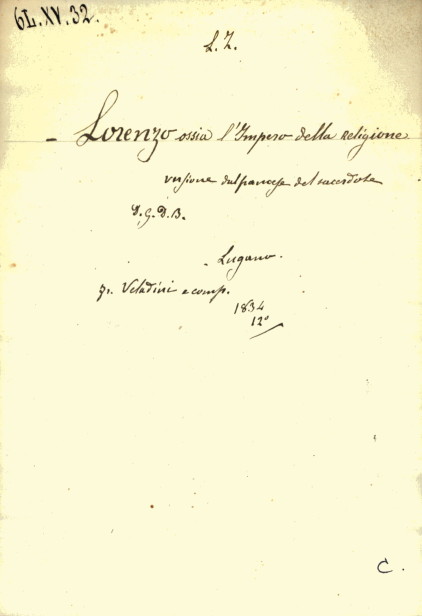 6L.XV.32.
L.Z.
- Lorenzo ossia l'Impero della Religione
versione dal francese del sacerdote
D. G. D. B.
- Lugano.
Fr. Veladini e comp.
1834
12º
C.